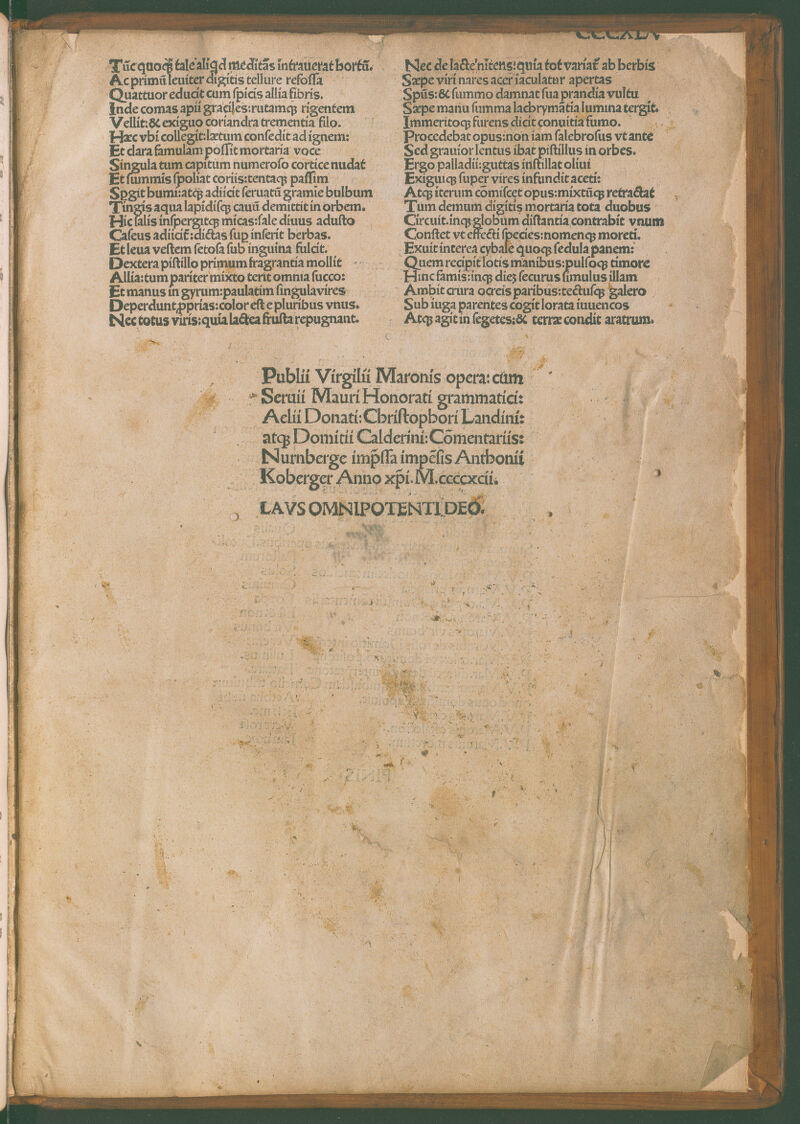 CCCXLV
Tūc quoqꝫ tale aliqd meditās intrauerat hortū.
Ac primū leuiter digitis tellure refossa
Quattuor educit cum spicis allia fibris.
Inde comas apii graciles: rutamqꝫ rigentem
Vellit: & exiguo coriandra trementia filo.
Hæc vbi collegit: lætum consedit ad ignem:
Et clara famulam possit mortaria voce
Singula tum capitum numeroso cortice nudat
Et summis spoliat coriis: tentaqꝫ passim
Spgit humi: atqꝫ adiicit seruatū gramie bulbum
Tingis aqua lapidisqꝫ cauū demittit in orbem.
Hic salis inspergitqꝫ micas: sale diuus adusto
Caseus adiicit̄: dictas sup inserit herbas.
Et leua vestem setosa sub inguina fulcit.
Dextera pistillo primum fragrantia mollit
Allia: tum pariter mixto terit omnia succo:
Et manus in gyrum: paulatim singula vires
Deperdunt ꝓprias: color est e pluribus vnus.
Nec totus viris: quia lactea frusta repugnant.
Nec de lacte nitens: quia tot variat̄ ab herbis
Sæpe viri nares acer iaculatur apertas
Spūs: & summo damnat sua prandia vultu
Sæpe manu summa lachrymātia lumina tergit.
Immeritoqꝫ furens dicit conuitia fumo.
Procedebat opus: non iam salebrosus vt ante
Sed grauior lentus ibat pistillus in orbes.
Ergo palladii: guttas instillat oliui
Exiguiqꝫ super vires infundit aceti:
Atqꝫ iterum cōmiscet opus: mixtūqꝫ retractat
Tum demum digitis mortaria tota duobus
Circuit. inqꝫ globum distantia contrahit vnum
Constet vt effecti species: nomenqꝫ moreti.
Exuit interea cybale quoqꝫ sedula panem:
Quem recipit lotis manibus: pulsoqꝫ timore
Hinc famis: inqꝫ diē securus simulus illam
Ambit crura ocreis paribus: tectusqꝫ galero
Sub iuga parentes cogit lorata iuuencos
Atqꝫ agit in segetes: & terræ condit aratrum.
Publii Virgilii Maronis opera: cum
Seruii Mauri Honorati grammatici:
Aelii Donati: Christophori Landini:
atqꝫ Domitii Calderini: Cōmentariis:
Nurnberge imp̄ssa impēsis Anthonii
Koberger Anno xp̄i. M.ccccxcii.
LAVS OMNIPOTENTI DEO.